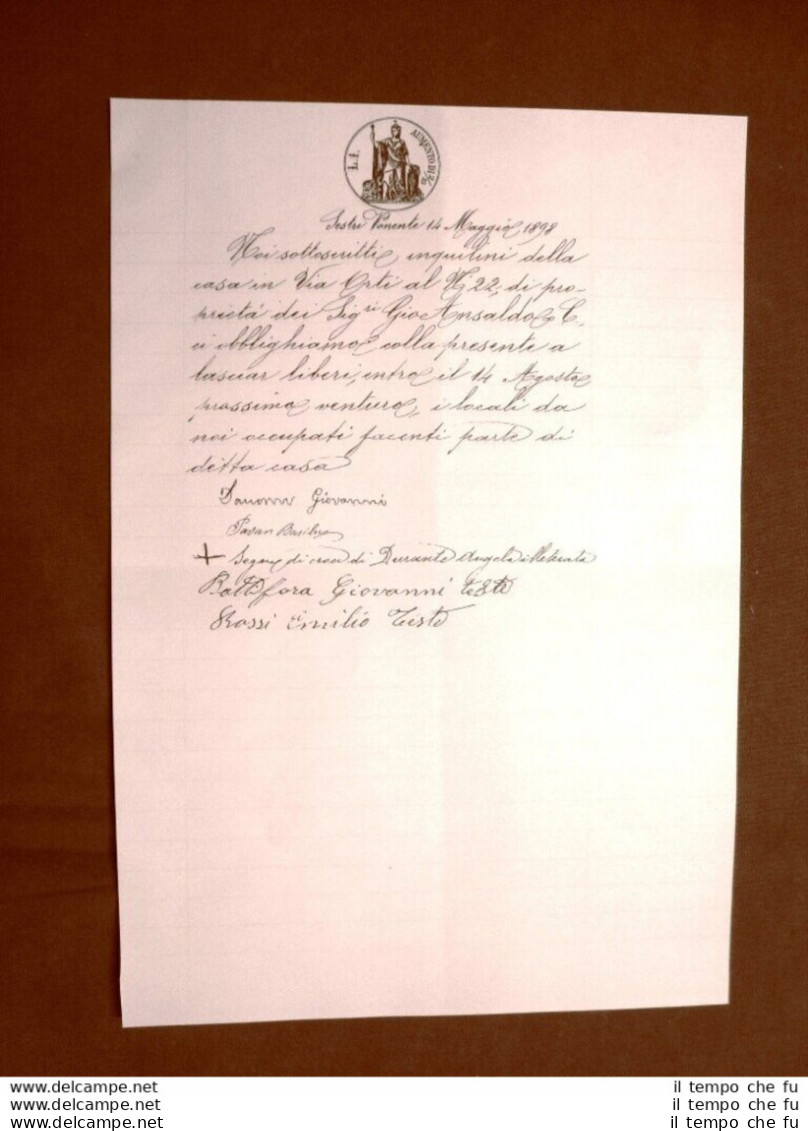 L. 1. AUMENTO DI 2/10
Sestri Ponente 14 Maggio 1898
Noi sottoscritti, inquilini della
casa in Via Orti al N. 22, di pro-
prietá dei Sigri Gio Ansaldo e C,
ci obblighiamo colla presente a
lasciar liberi, entro il 14 Agosto
prossimo venturo, i locali da
noi occupati facenti parte di
detta casa
Giovanni
Pavan
+ Segno di croce di Durante Angela illetterata
Battifora Giovanni teste
Rossi Emilio Teste
www.delcampe.net
www.delcampe.net
www.delcampe.net
il tempo che fu
il tempo che fu
il tempo che fu